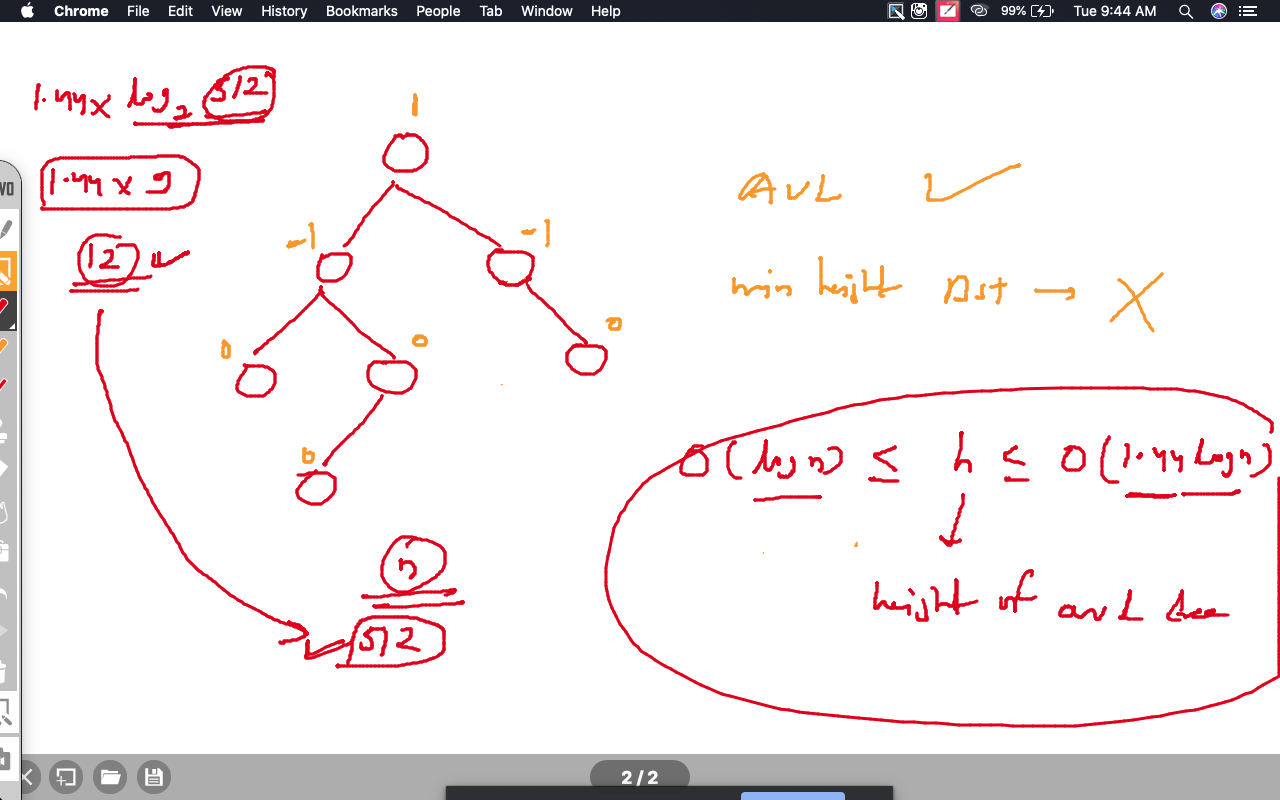 Chrome File Edit View History Bookmarks People Tab Window Help 99% Tue 9:44 AM
1.44 x log₂ 512
1.44 x 9
12
1
-1
-1
0
0
0
0
n
512
AVL
min height Bst → X
O(log n) ≤ h ≤ O(1.44 log n)
height of avL tree
2 / 2